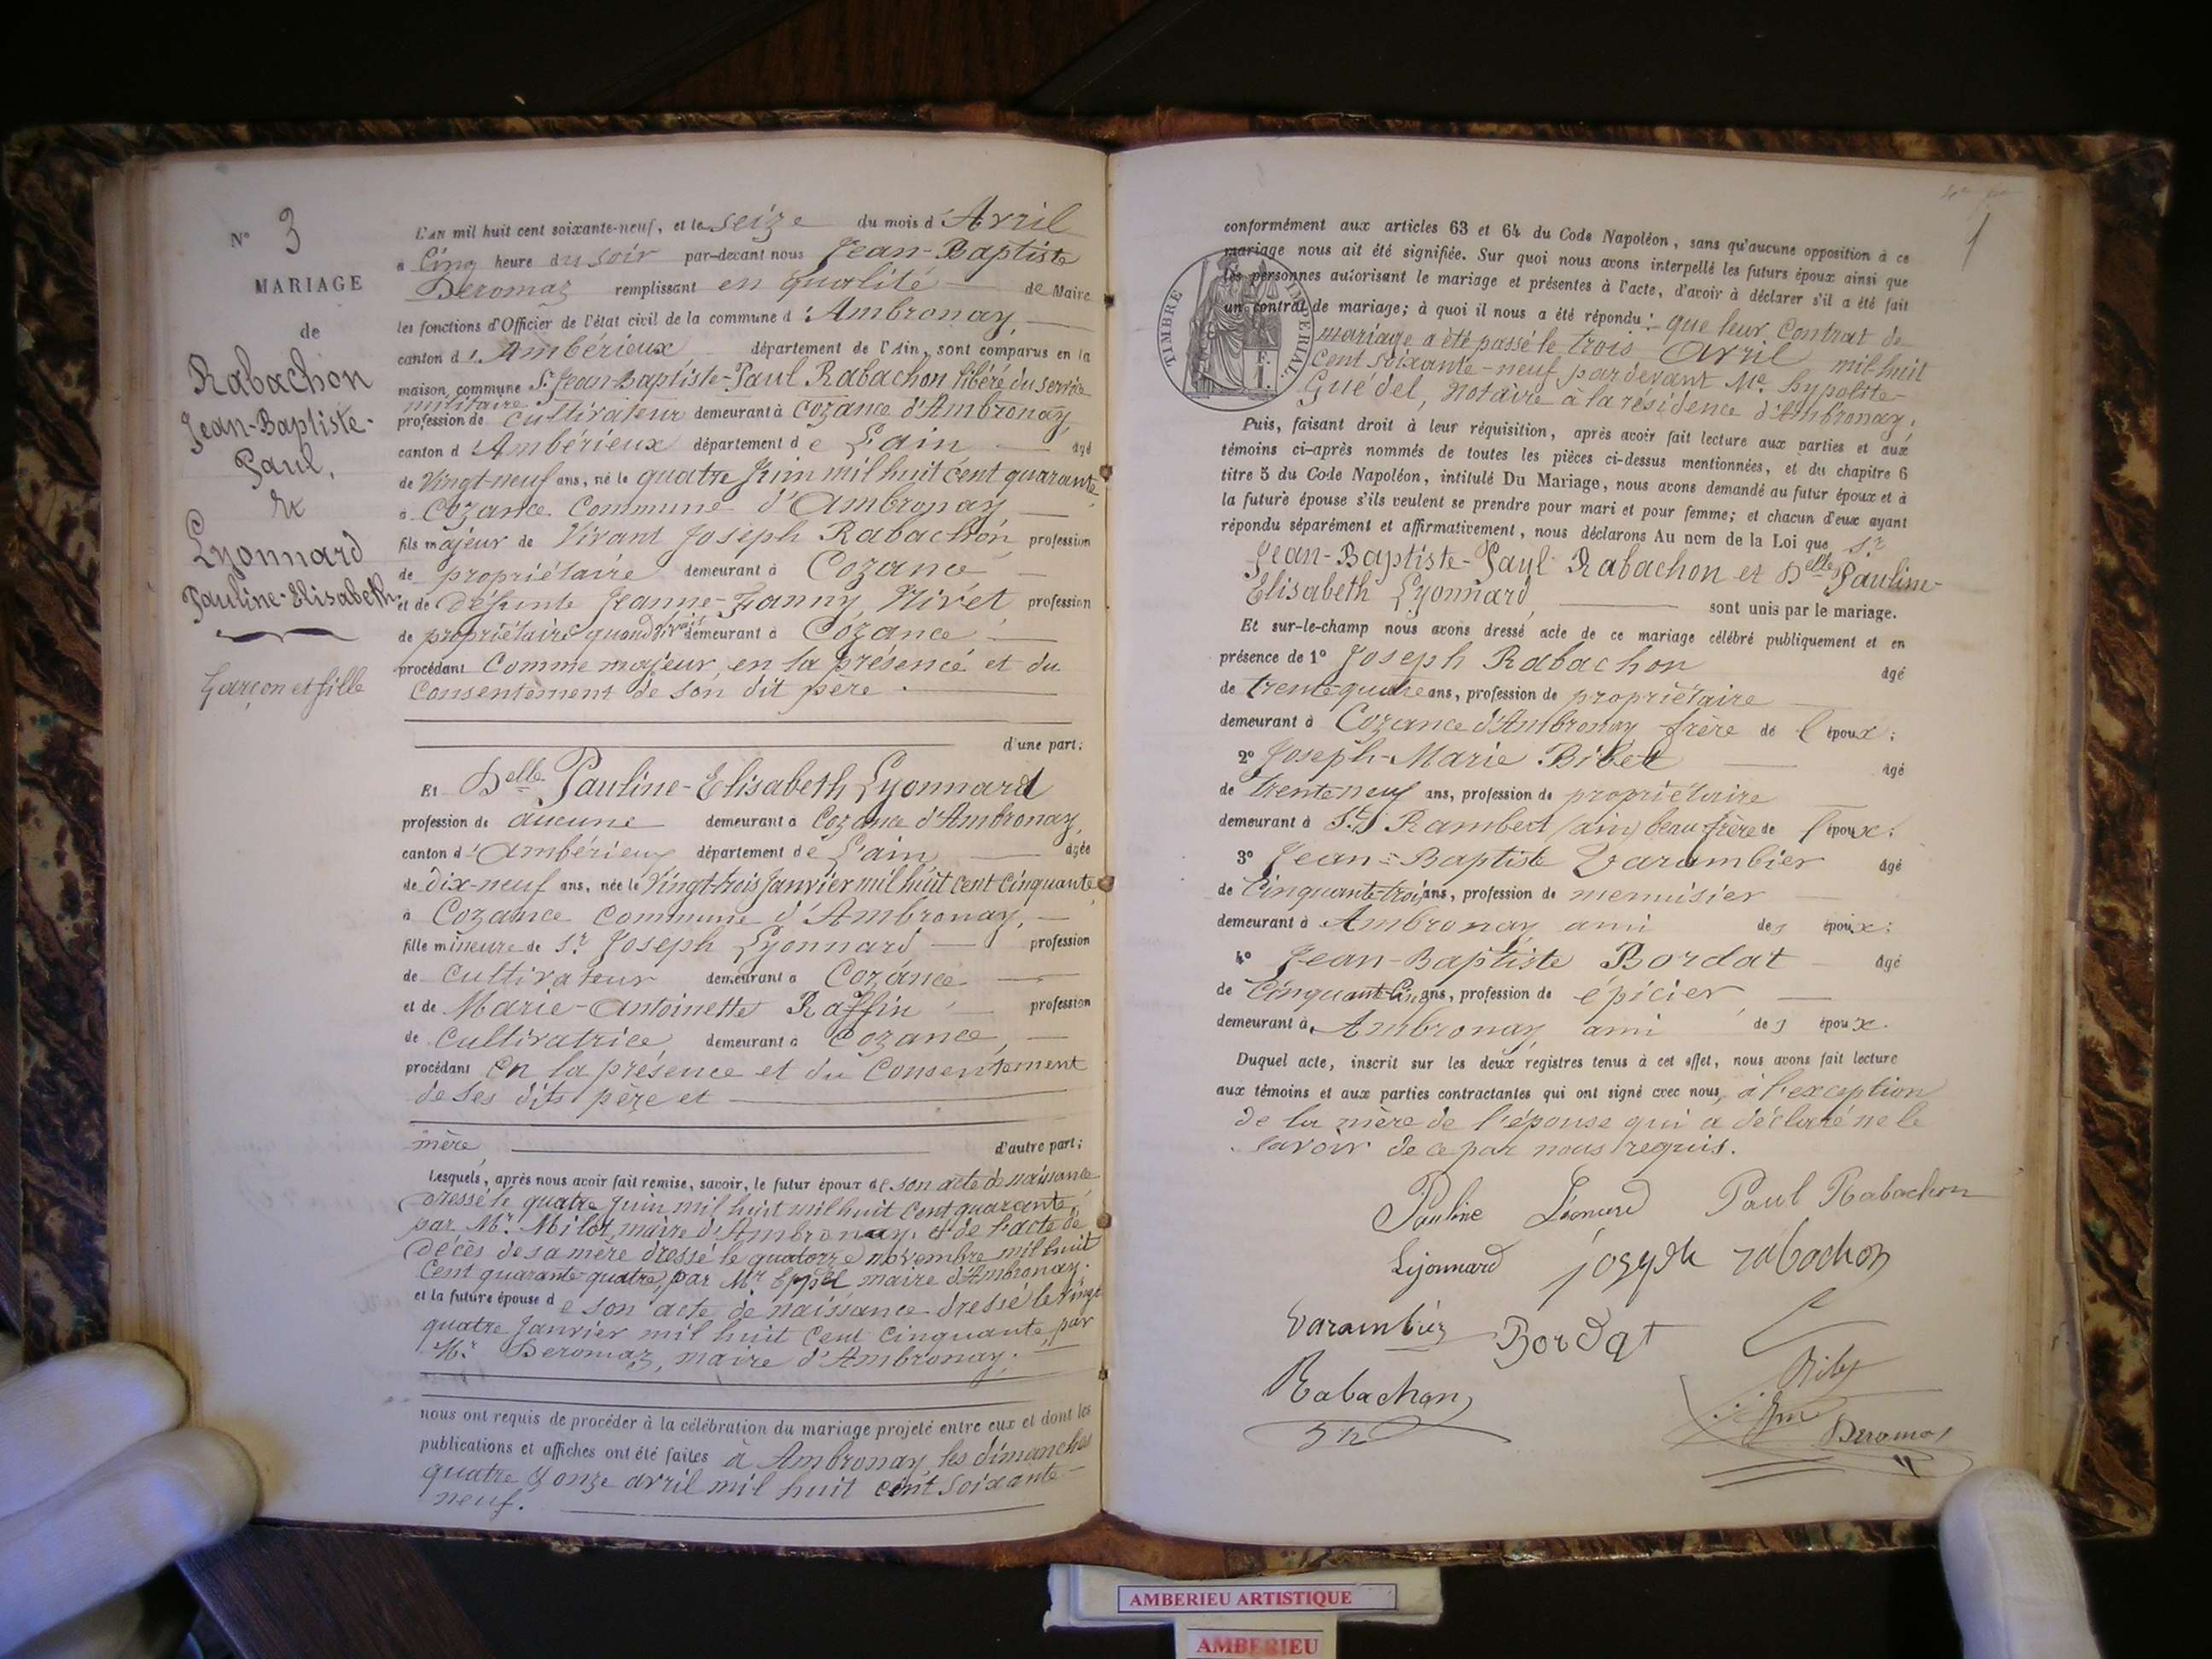 N° 3
MARIAGE
de
Rabachon
Jean-Baptiste-
Paul,
&
Lyonnard
Pauline-Elisabeth
Garçon et fille
L'AN mil huit cent soixante-neuf, et le seize du mois d'Avril
à Cinq heure du soir par-devant nous Jean-Baptiste
Deromaz remplissant en qualité de Maire
les fonctions d'Officier de l'état civil de la commune d'Ambronay,
canton d'Ambérieux département de l'Ain, sont comparus en la
maison commune Sr. Jean-Baptiste-Paul Rabachon libéré du service
militaire
profession de cultivateur demeurant à Cozance d'Ambronay,
canton d'Ambérieux département de L'ain âgé
de Vingt-neuf ans, né le quatre Juin mil huit cent quarante
à Cozance Commune d'Ambronay
fils majeur de Vivant Joseph Rabachon, profession
de propriétaire demeurant à Cozance
et de défunte Jeanne-Fanny Nivet profession
de propriétaire quand vivait demeurant à Cozance
procédant Comme majeur, en la présence et du
Consentement de son dit père.
d'une part;
Et Delle Pauline-Elisabeth Lyonnard
profession de aucune demeurant à Cozance d'Ambronay,
canton d'Ambérieux département de L'ain âgée
de dix-neuf ans, née le Vingt-trois Janvier mil huit cent Cinquante
à Cozance Commune d'Ambronay,
fille mineure de Sr. Joseph Lyonnard profession
de Cultivateur demeurant à Cozance
et de Marie-Antoinette Raffin profession
de Cultivatrice demeurant à Cozance,
procédant En la présence et du Consentement
de ses dits père et
mère d'autre part;
Lesquels, après nous avoir fait remise, savoir, le futur époux de son acte de naissance
dressé le quatre Juin mil huit mil huit Cent quarante,
par Mr. Milot, maire d'Ambronay. et de l'acte de
décès de sa mère dressé le quatorze novembre mil huit
Cent quarante quatre, par Mr maire d'Ambronay.
et la future épouse de son acte de naissance dressé le Vingt
quatre Janvier mil huit Cent Cinquante, par
Mr. Deromaz, maire d'Ambronay.
nous ont requis de procéder à la célébration du mariage projeté entre eux et dont les
publications et affiches ont été faites à Ambronay les dimanches
quatre & onze avril mil huit cent soixante-
neuf.
1
conformément aux articles 63 et 64 du Code Napoléon, sans qu'aucune opposition à ce
mariage nous ait été signifiée. Sur quoi nous avons interpellé les futurs époux ainsi que
les personnes autorisant le mariage et présentes à l'acte, d'avoir à déclarer s'il a été fait
un contrat de mariage; à quoi il nous a été répondu: que leur Contrat de
mariage a été passé le trois Avril mil huit
Cent soixante-neuf par devant Me. hypolite
Guédel, Notaire à la résidence d'Ambronay.
TIMBRE IMPÉRIAL
Puis, faisant droit à leur réquisition, après avoir fait lecture aux parties et aux
témoins ci-après nommés de toutes les pièces ci-dessus mentionnées, et du chapitre 6
titre 5 du Code Napoléon, intitulé Du Mariage, nous avons demandé au futur époux et à
la future épouse s'ils veulent se prendre pour mari et pour femme; et chacun d'eux ayant
répondu séparément et affirmativement, nous déclarons Au nom de la Loi que Sr
Jean-Baptiste-Paul Rabachon et Delle Pauline-
Elisabeth Lyonnard, sont unis par le mariage.
Et sur-le-champ nous avons dressé acte de ce mariage célébré publiquement et en
présence de 1° Joseph Rabachon âgé
de trente quatre ans, profession de propriétaire
demeurant à Cozance d'Ambronay frère de l'époux;
2° Joseph-Marie Bibet âgé
de trente neuf ans, profession de propriétaire
demeurant à St. Rambert (ain) beau frère de l'époux;
3° Jean-Baptiste Varambier âgé
de Cinquante-trois ans, profession de menuisier
demeurant à Ambronay ami des époux;
4° Jean-Baptiste Bordat âgé
de Cinquante Cinq ans, profession de épicier
demeurant à Ambronay, ami des époux.
Duquel acte, inscrit sur les deux registres tenus à cet effet, nous avons fait lecture
aux témoins et aux parties contractantes qui ont signé avec nous, à l'exception
de la mère de l'épouse qui a déclaré ne le
savoir de ce par nous requis.
Pauline Léonard Paul Rabachon
Lyonnard joseph rabachon
Varambier Bordat
Rabachon
Deromas
AMBERIEU ARTISTIQUE
AMBERIEU